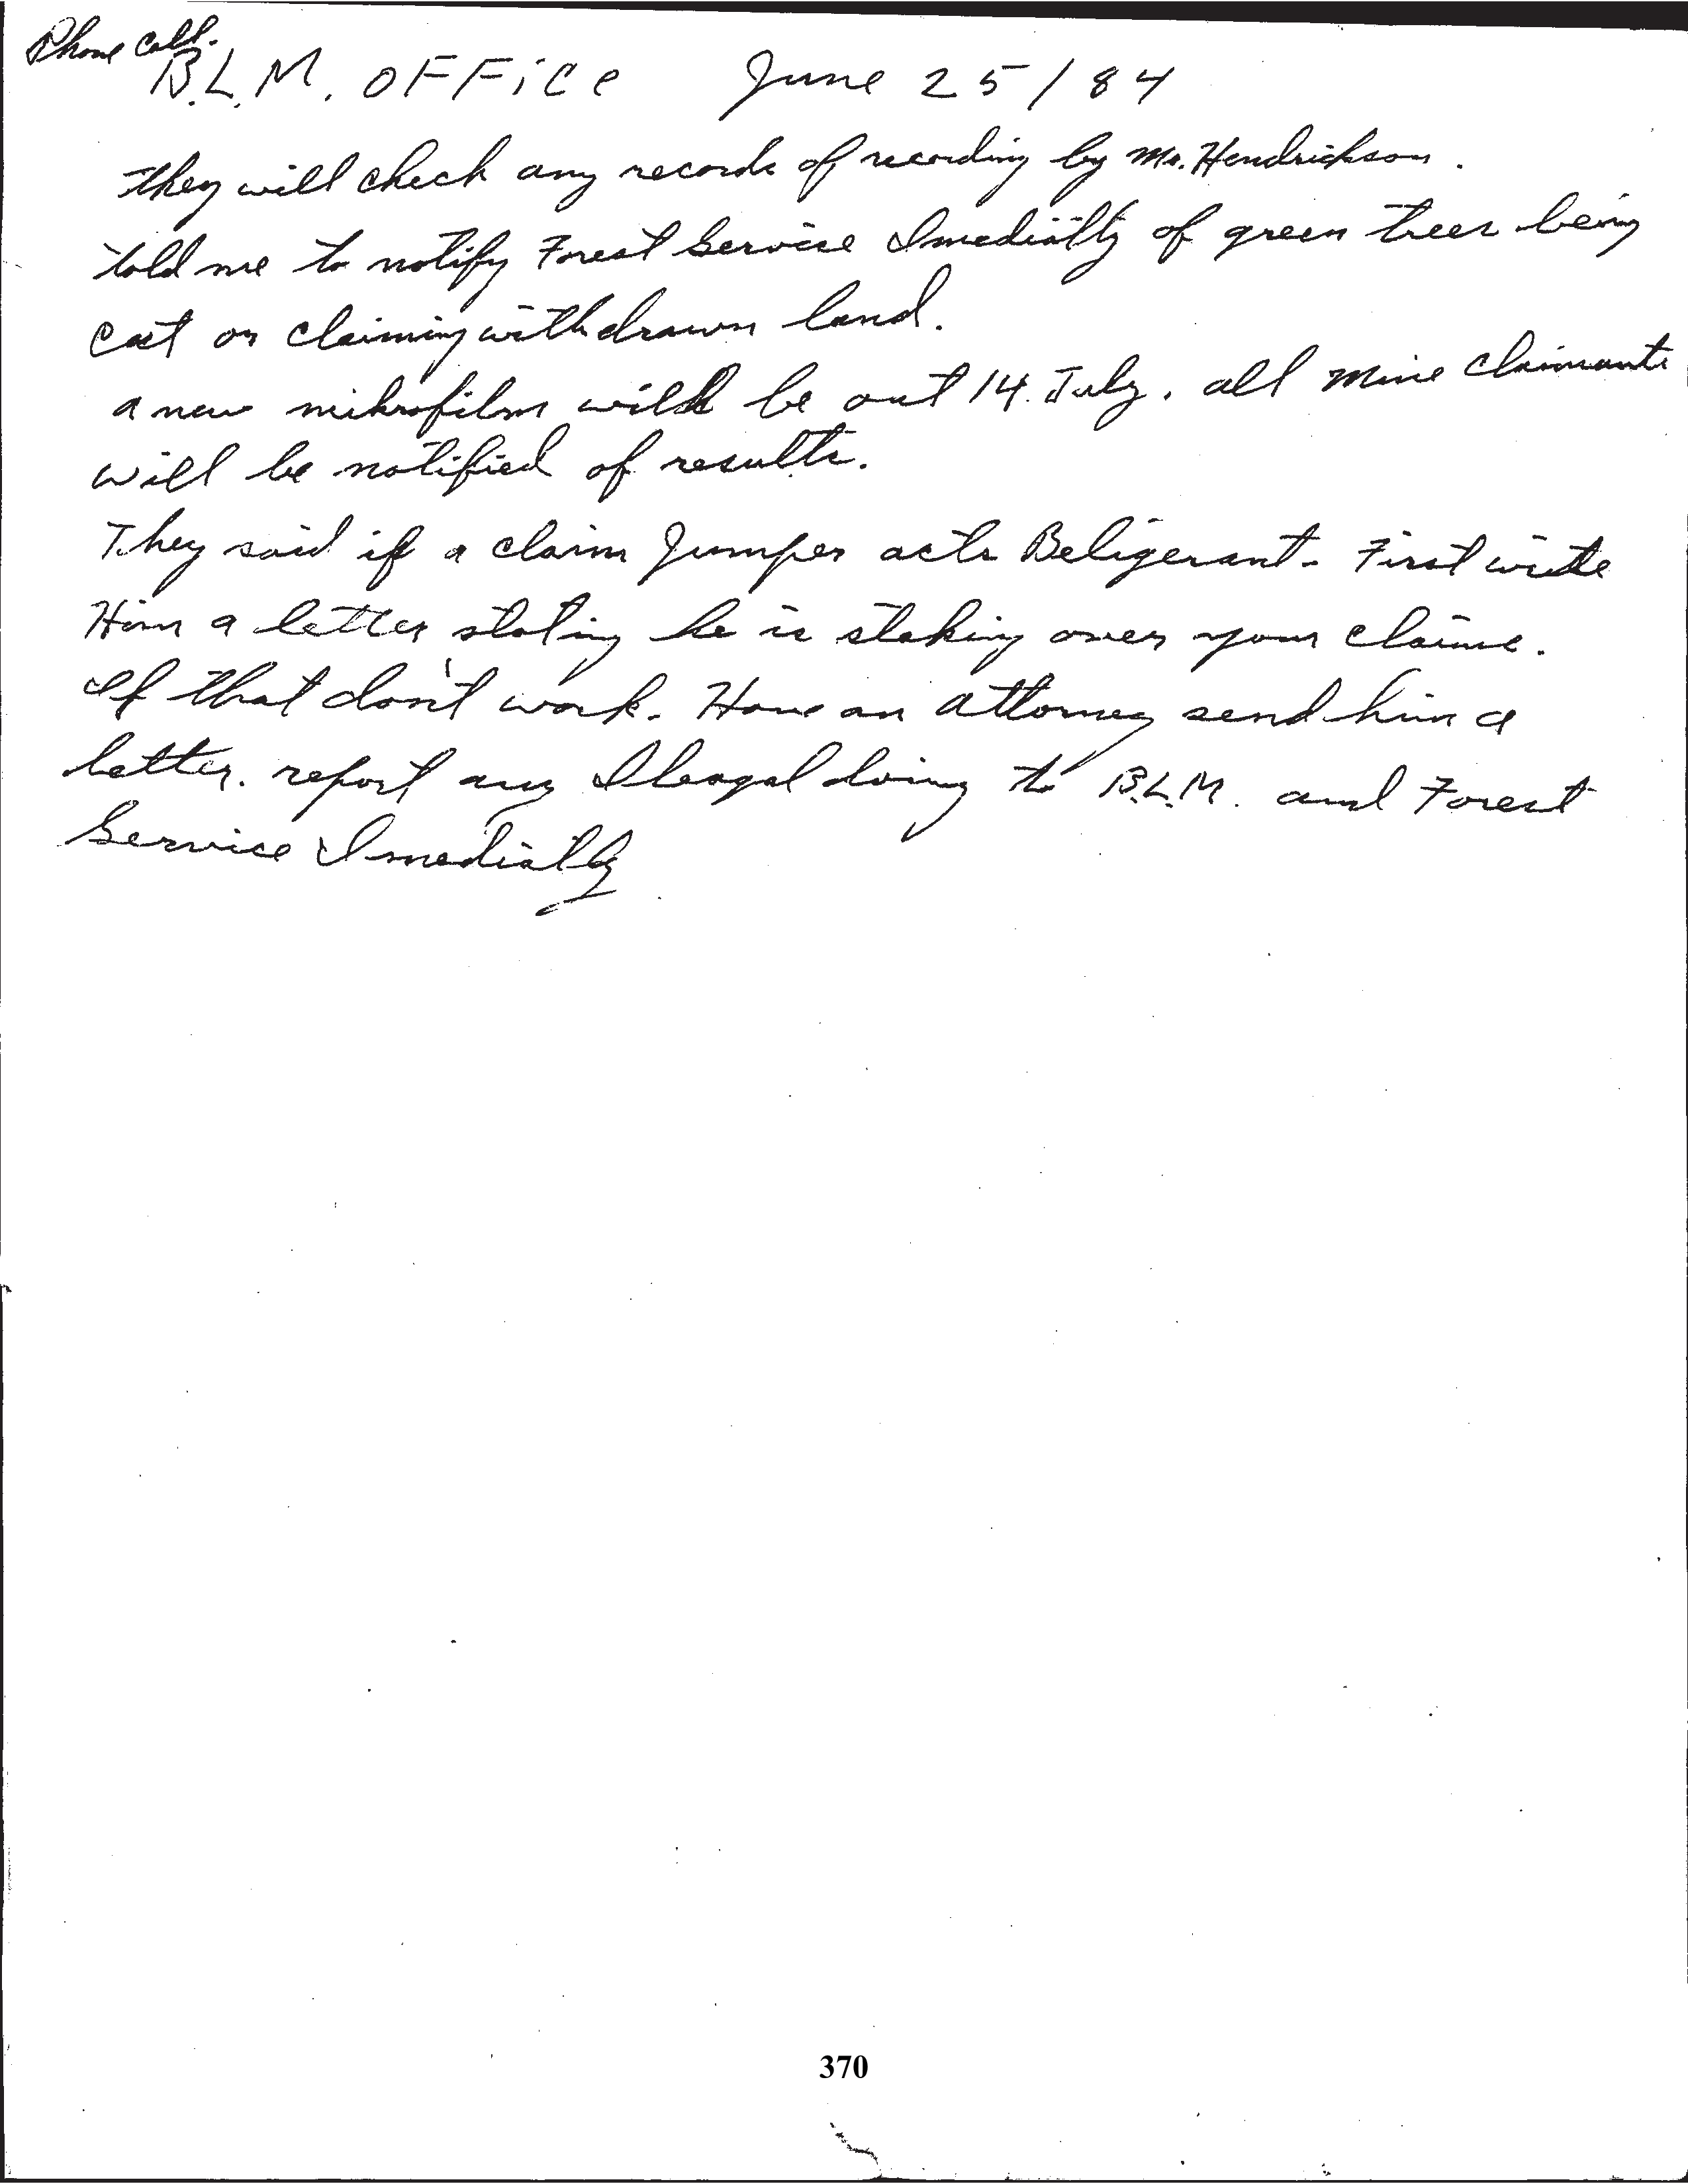 Phone Call.
B.L.M. OFFice June 25/84
They will check any records of recording by Mr. Hendrickson.
told me to notify Forest Service Imediatly of green trees being
cut or claiming withdrawn land.
a new mikrofilm will be out 14. July. all Mine Claimants
will be notified of results.
They said if a claim Jumper acts Beligerant. First write
Him a letter stating he is staking over your claims.
If that don't work. Have an attorney send him a
letter. report any Ileagal doing to B.L.M. and Forest
Service Imediatly
370